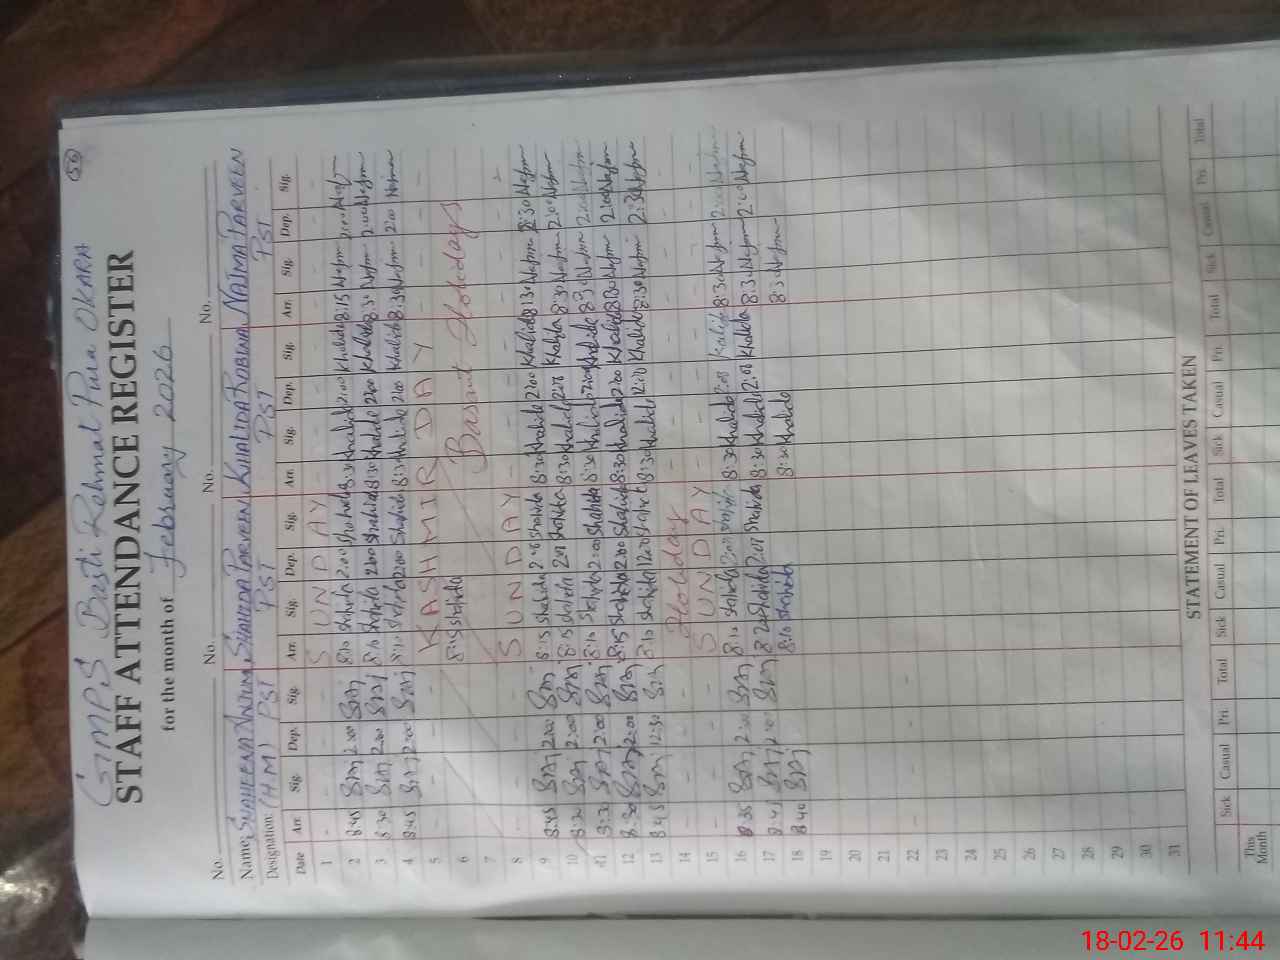 56
GMPS Basti Rehmat Pura OKARA
STAFF ATTENDANCE REGISTER
for the month of February 2026
No. No. No. No.
Name: SHAHEENA ANJUM SHAHIDA PARVEEN KHALIDA ROBINA NAJMA PARVEEN
Designation: (H.M) PST PST PST PST
Date Arr. Sig. Dep. Sig. Arr. Sig. Dep. Sig. Arr. Sig. Dep. Sig. Arr. Sig. Dep. Sig.
1 - - - - SUNDAY - - - - - - - -
2 8:45 2:00 8:10 Shahida 2:00 Shahida 8:30 Khalida 2:00 Khalida 8:15 2:00
3 8:30 2:00 8:10 Shahida 2:00 Shahida 8:30 Khalida 2:00 Khalida 8:30 2:00
4 8:45 2:00 8:10 Shahida 2:00 Shahida 8:30 Khalida 2:00 Khalida 8:30 2:00
5 - - - - KASHMIR DAY - - - -
6 8:15 Shahida Basant Holidays
7
8 - - - - SUNDAY - - - - - - - -
9 8:45 2:00 8:15 Shahida 2:00 Shahida 8:30 Khalida 2:00 Khalida 8:30 2:30
10 8:30 2:00 8:15 Shahida 2:00 Shahida 8:30 Khalida 2:00 Khalida 8:30 2:00
11 8:30 2:00 8:10 Shahida 2:00 Shahida 8:30 Khalida 2:00 Khalida 8:30 2:00
12 8:30 2:00 8:15 Shahida 2:00 Shahida 8:30 Khalida 2:00 Khalida 8:30 2:00
13 8:45 12:30 8:10 Shahida 12:30 Shahida 8:30 Khalida 12:00 Khalida 8:30
14 - - - - Holiday - - - - - - - -
15 - - - - SUNDAY - - - - - - - -
16 8:35 2:00 8:10 Shahida 2:00 Shahida 8:30 Khalida 2:00 Khalida 8:30 2:00
17 8:45 2:00 8:20 Shahida 2:00 Shahida 8:30 Khalida 2:00 Khalida 8:30 2:00
18 8:40 8:10 Shahida 8:30 Khalida 8:30
19
20
21
22 - - -
23
24
25
26
27
28
29
30
31
STATEMENT OF LEAVES TAKEN
Sick Casual Pri. Total Sick Casual Pri. Total Sick Casual Pri. Total Sick Casual Pri. Total
This Month
18-02-26 11:44